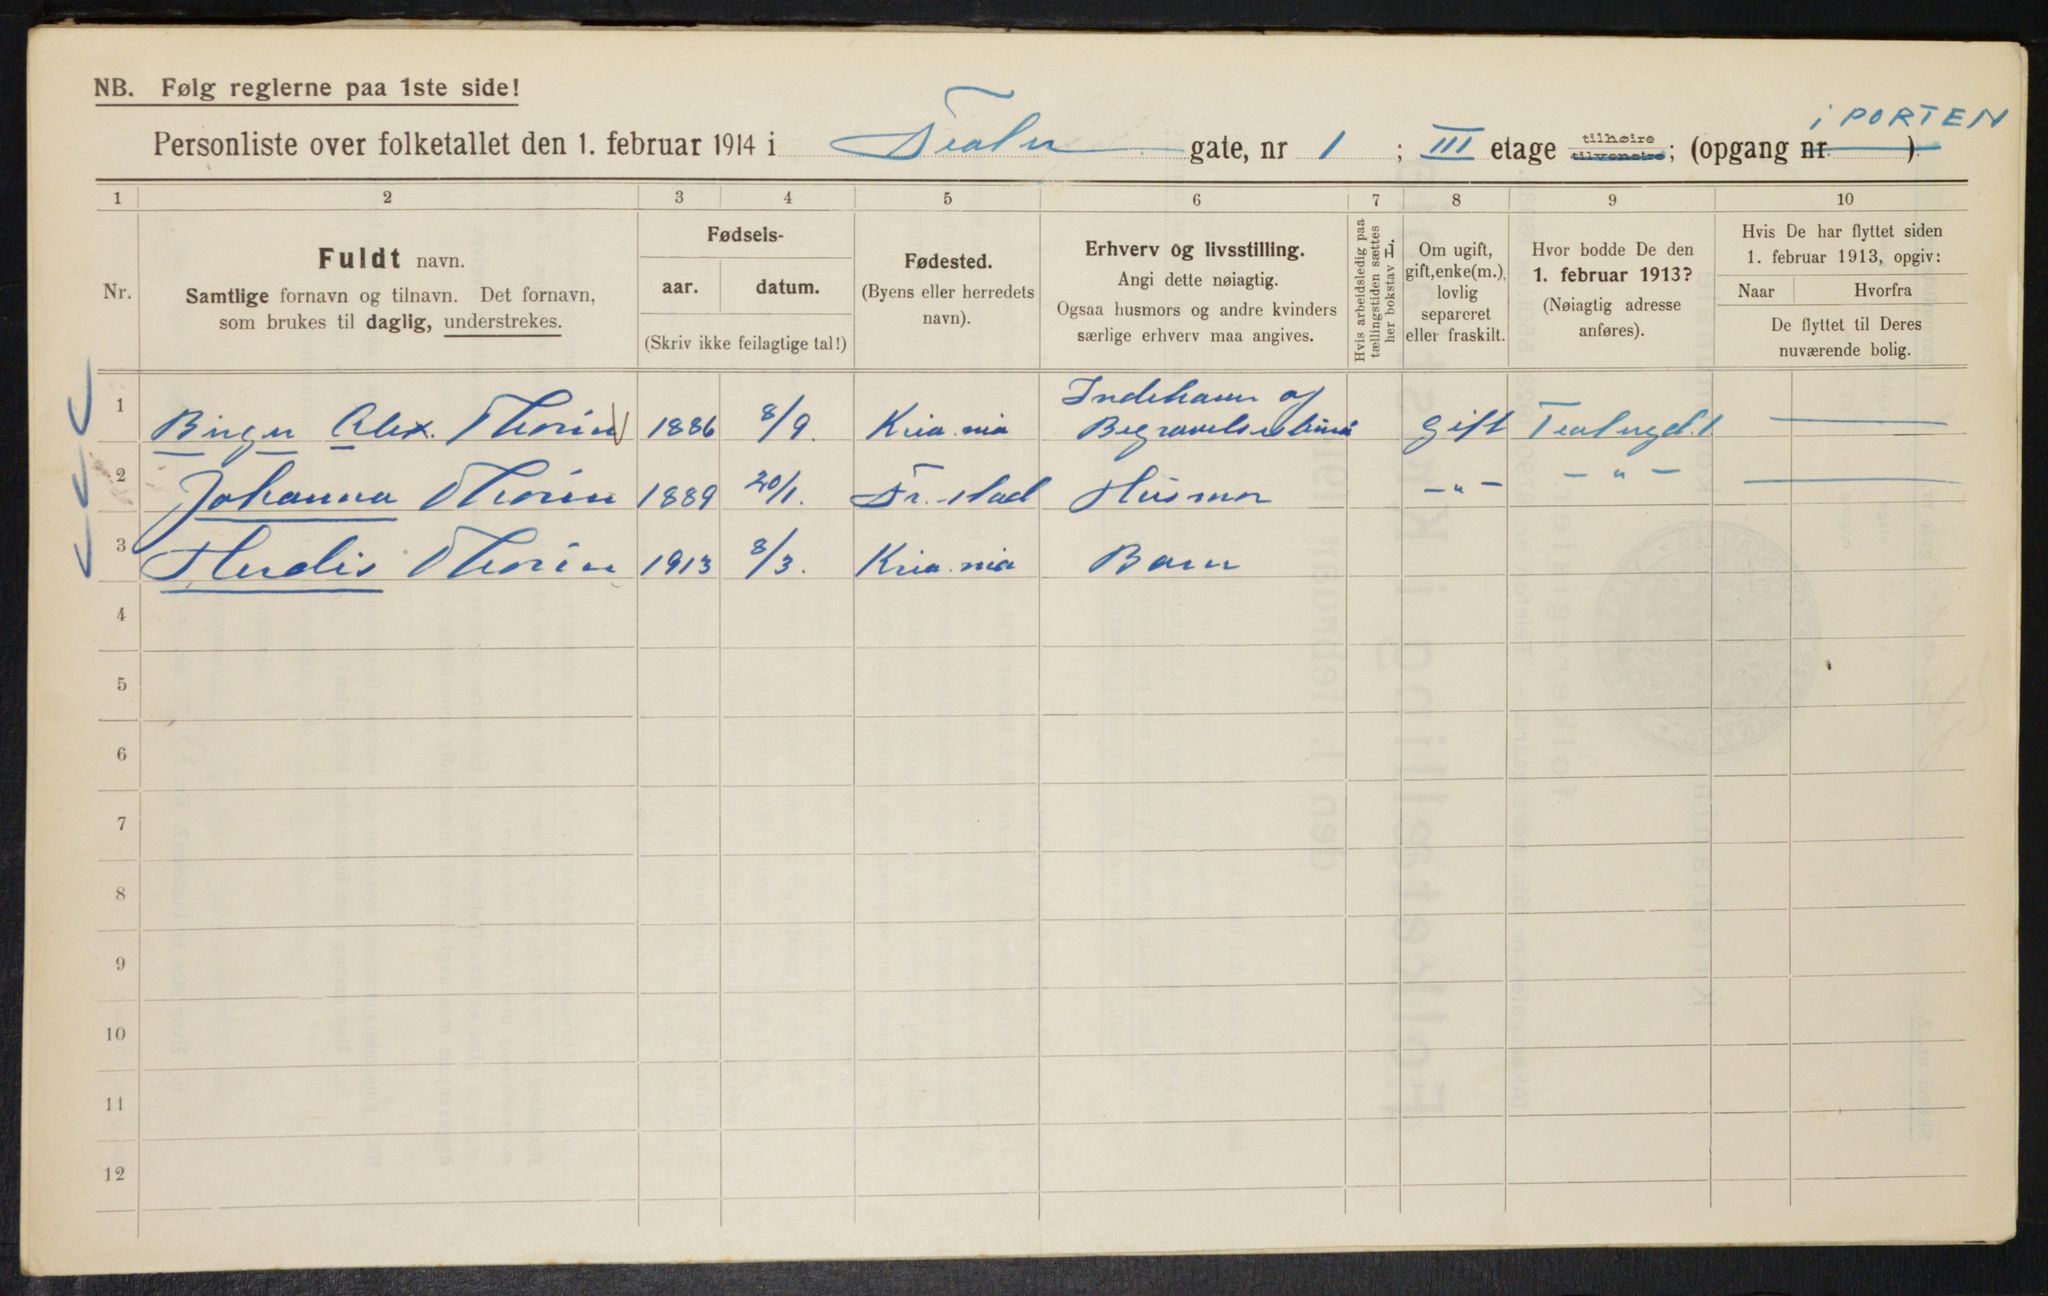 NB. Følg reglerne paa 1ste side!
i PORTEN
Personliste over folketallet den 1. februar 1914 i Teater gate, nr 1 ; III etage tilhøire tilvenstre; (opgang nr )
1 2 3 4 5 6 7 8 9 10
Nr.
Fuldt navn.
Samtlige fornavn og tilnavn. Det fornavn,
som brukes til daglig, understrekes.
Fødsels-
aar. datum.
(Skriv ikke feilagtige tal!)
Fødested.
(Byens eller herredets
navn).
Erhverv og livsstilling.
Angi dette nøiagtig.
Ogsaa husmors og andre kvinders
særlige erhverv maa angives.
Hvis arbeidsledig paa
tællingstiden sættes
her bokstav L.
Om ugift,
gift, enke(m.),
lovlig
separeret
eller fraskilt.
Hvor bodde De den
1. februar 1913?
(Nøiagtig adresse
anføres).
Hvis De har flyttet siden
1. februar 1913, opgiv:
Naar Hvorfra
De flyttet til Deres
nuværende bolig.
1 Birger Alex. Thorin 1886 8/9. Kria.nia Indehaver af Begravelsesbürå Gift Teatergd. 1
2 Johanna Thorin 1889 20/1. Fr.stad Husmor –„– –„–
3 Herdis Thorin 1913 8/3. Kria.nia Barn
4
5
6
7
8
9
10
11
12